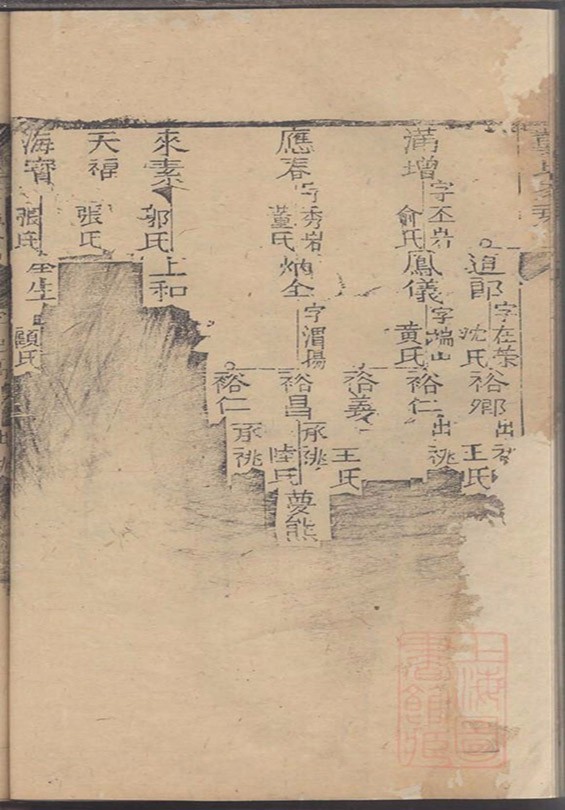 道郎
字在榮
沈氏
裕卿
出
王氏
滿增
字丕岩
俞氏
鳳儀
字端山
黄氏
裕仁
出祧
裕義
王氏
應春
字秀岩
董氏
炳全
字渭揚
裕昌
承祧
陸氏
夢熊
裕仁
承祧
來素
郭氏
上和
天福
張氏
海寶
張氏
顧氏
上海圖書館藏